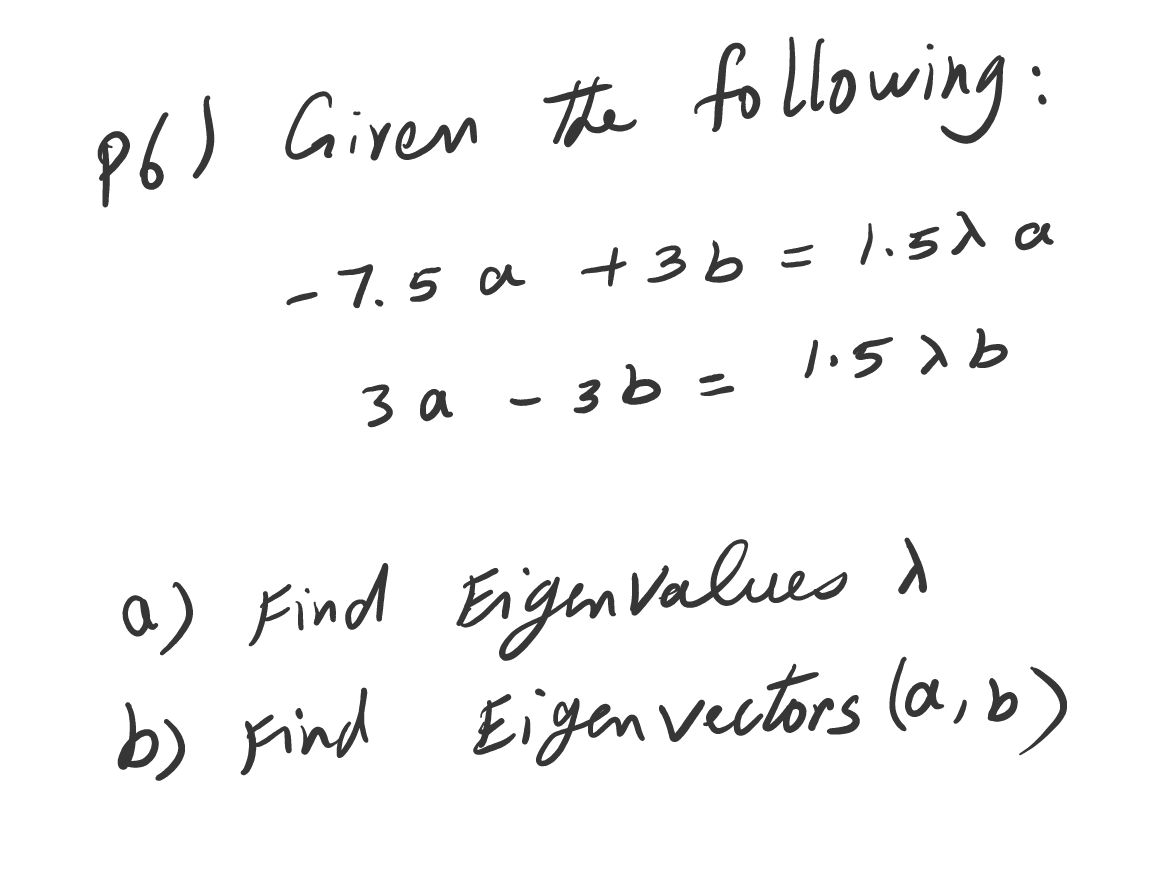 P6) Given the following:
-7.5 a + 3 b = 1.5 λ a
3 a - 3 b = 1.5 λ b
a) Find Eigenvalues λ
b) Find Eigenvectors (a, b)